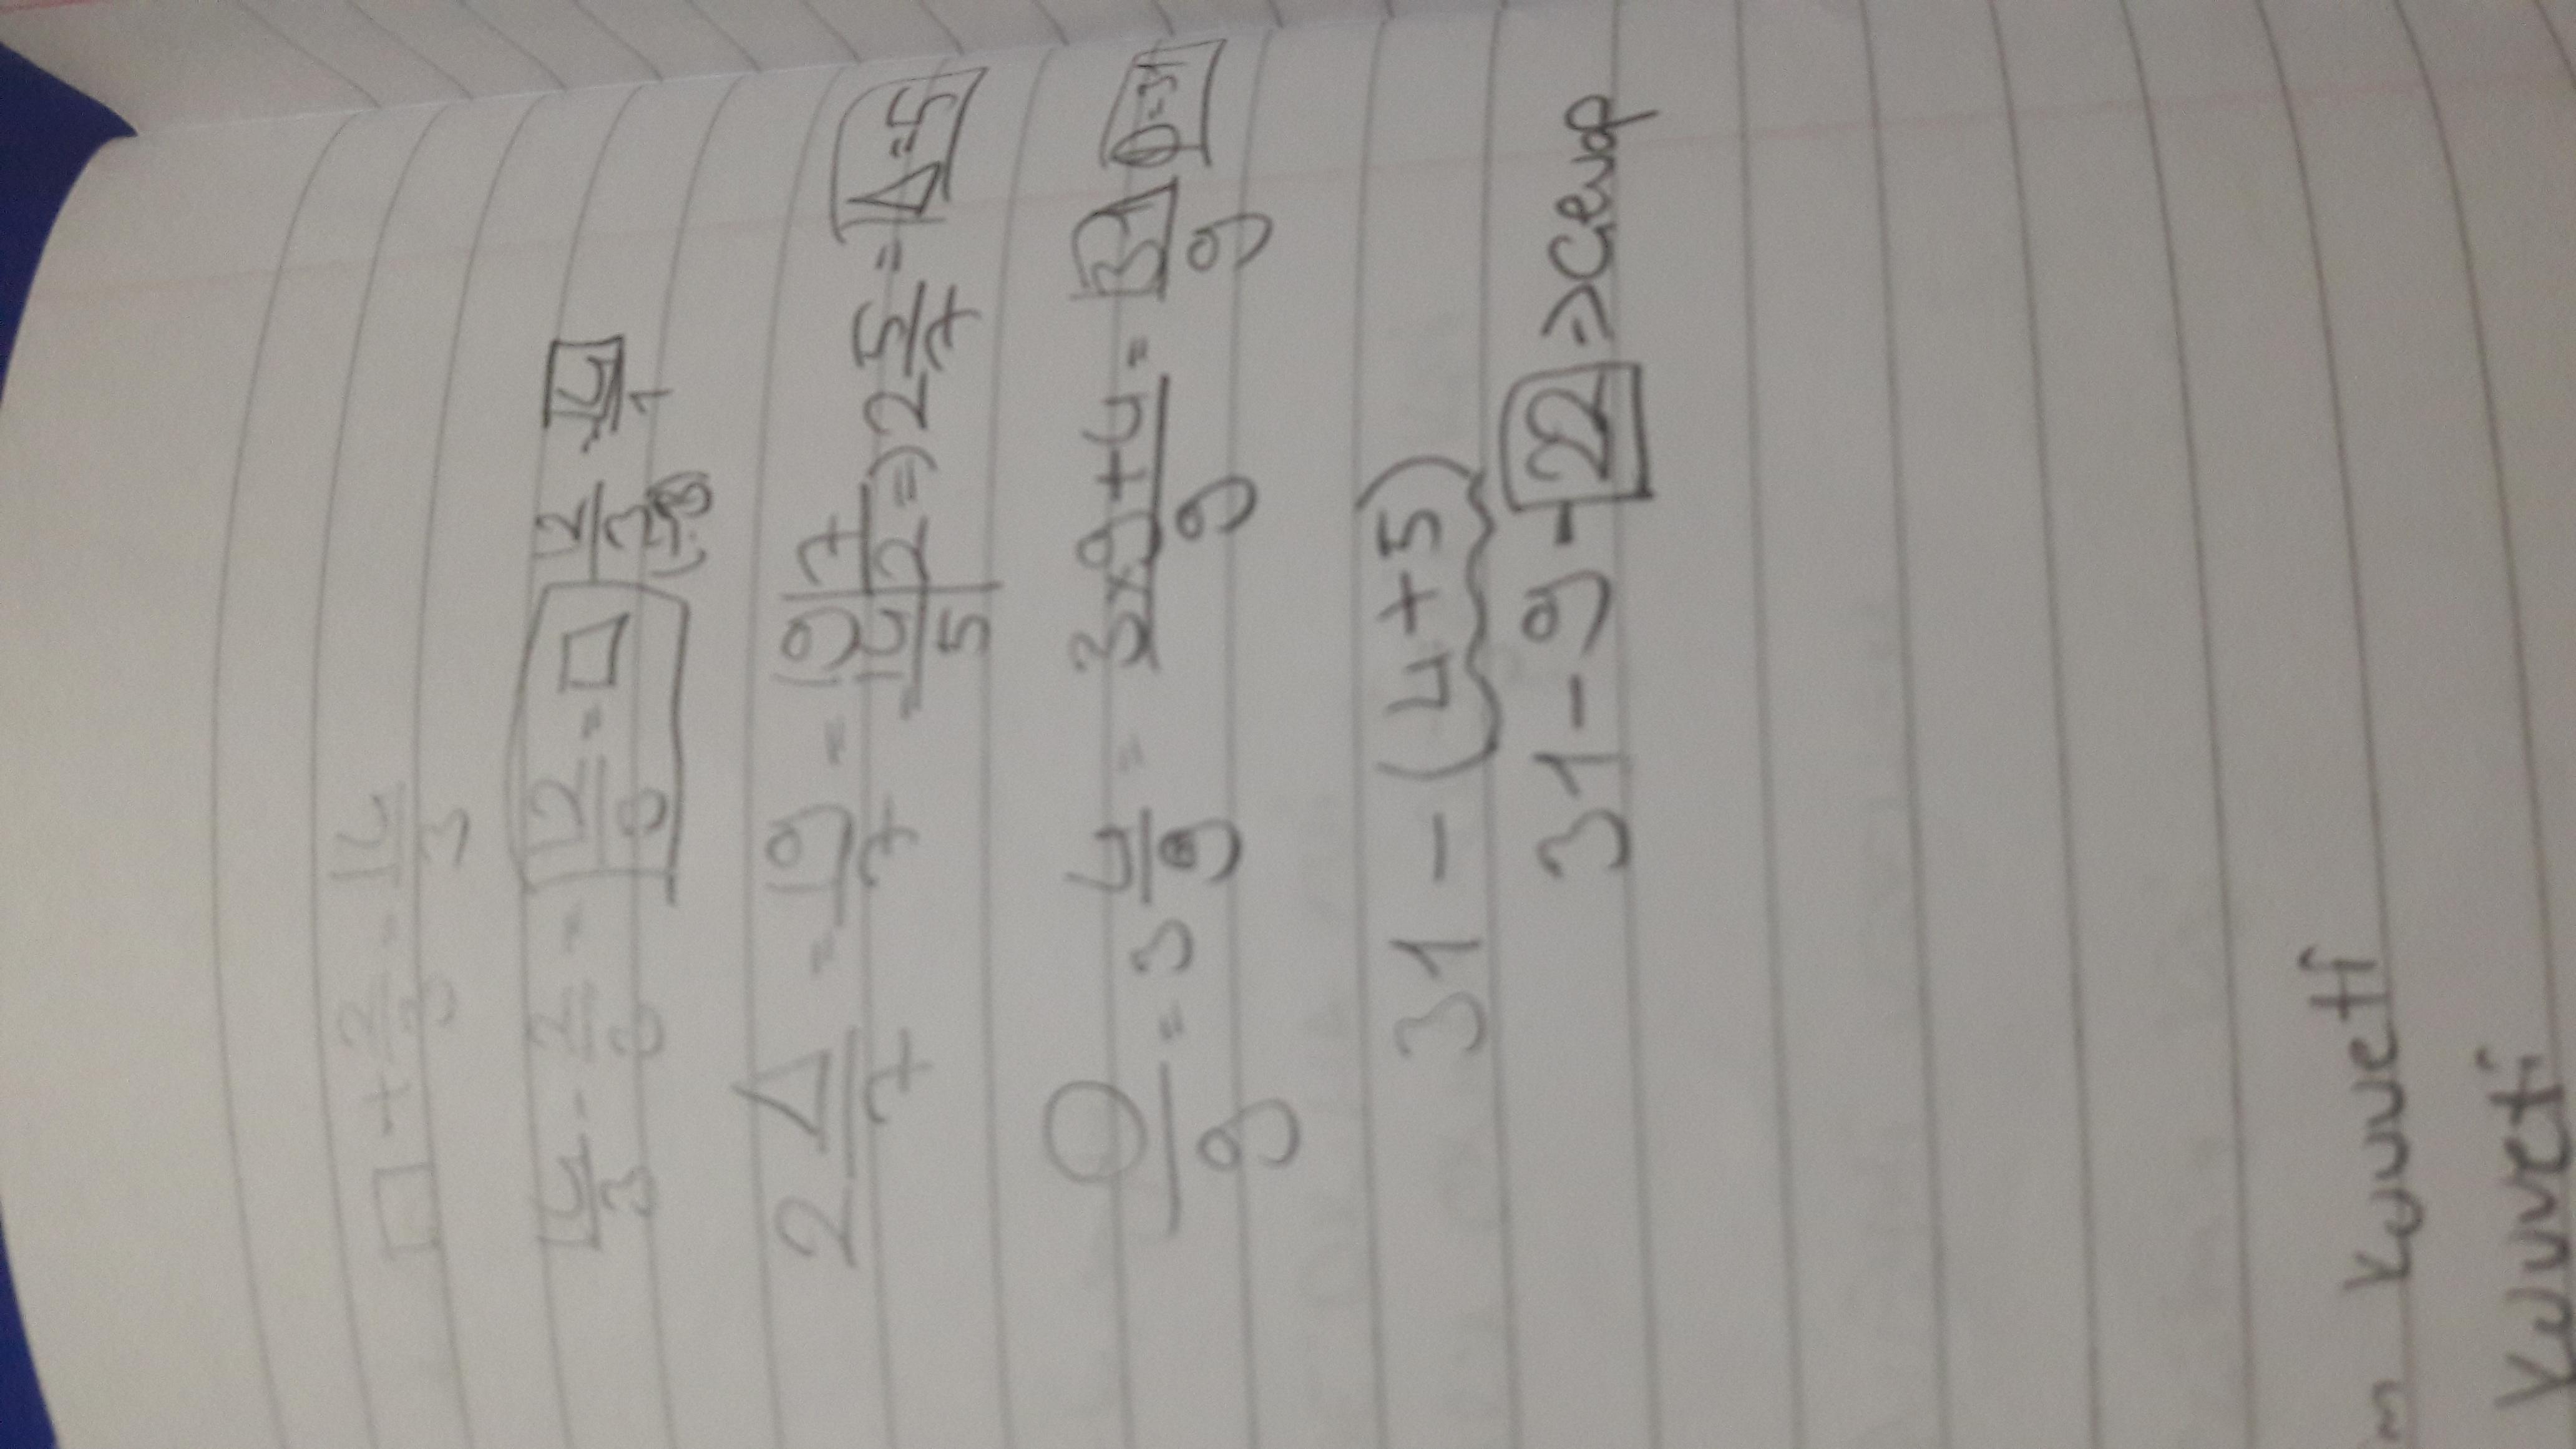 □ + 2/3 = 14/3
14/3 - 2/3 = 12/3 = □ 12/3 (÷3) 4/1
2 △/7 = 19/7 = 19 | 7 14 2 5 => 2 5/7 = △=5
○/9 = 3 4/9 = 3x9+4/9 = 31/9 ○=31
31 - (4+5)
31 - 9 - 22 => Cevap
m kuvveti
kuvveti